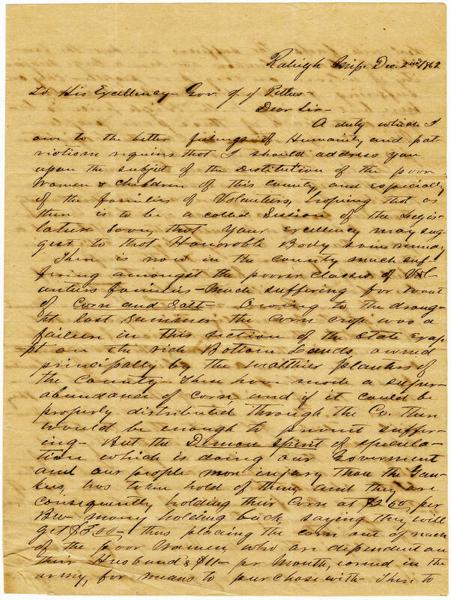 Raleigh Miss. Dec. 2nd 1862
To His Excellency Gov. J J Pettus
Dear Sir
A duty which I
owe to the better feelings of Humanity and pat
riotism requires that I should address you
upon the subject of the destitution of the poor
Women & Children of this county and especially
of the families of Volunteers, hoping that as
there is to be a called Session of the Legis
lature soon, that Your excellency may sug
gest to that Honorable Body some remedy
There is now in the county much suf
fering amongst the poorer classes of Vol
unteers families much suffering for want
of Corn and Salt. Owing to the droug
ht last Summer the Corn crop was a
failure in this section of the State exce
pt on the rich Bottom Lands owned
principally by the wealthier planters of
the County These have made a super
abundance of corn and if it could be
properly distributed through the Co. there
would be enough to prevent suffer
ing. But the Demon Spirit of specula
tion which is doing our Government
and our people more injury than the Yan
kees, has taken hold of them and they are
consequently holding their corn at per
many holding back saying they will
get thus placing the corn out of reach
of the poor Women who are dependent on
their Husband's $11 per Month, earned in the
army, for means to purchase with. There to